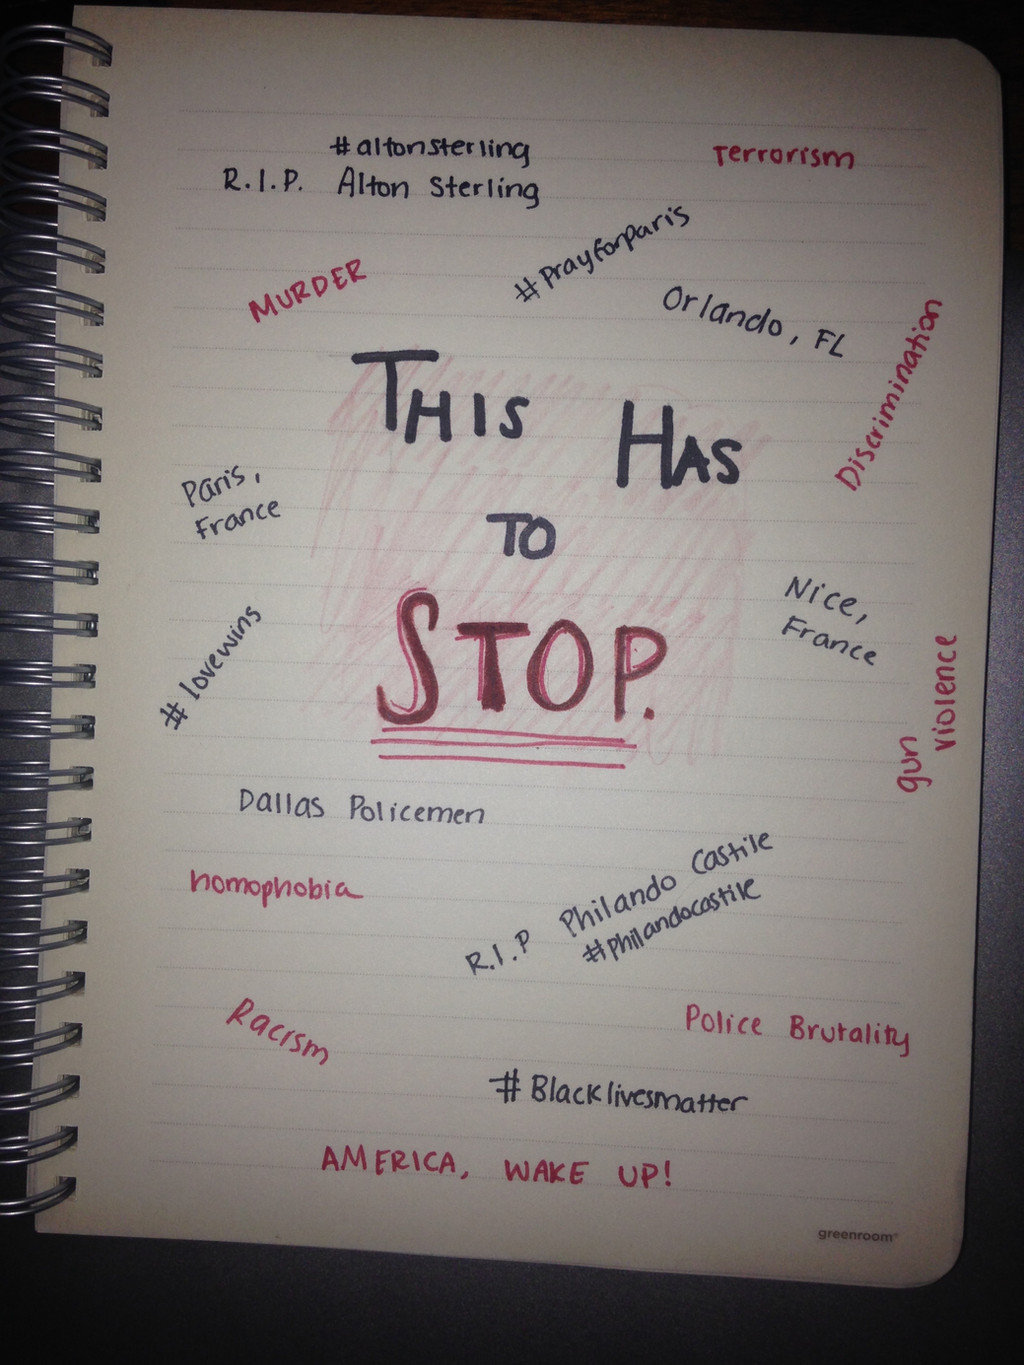 #altonsterling
R.I.P. Alton Sterling
Terrorism
#prayforparis
MURDER
Orlando, FL
Discrimination
THIS HAS
TO
STOP.
Paris,
France
Nice,
France
#lovewins
gun
violence
Dallas Policemen
homophobia
R.I.P Philando Castile
#philandocastile
Racism
Police Brutality
#Blacklivesmatter
AMERICA, WAKE UP!
greenroom®